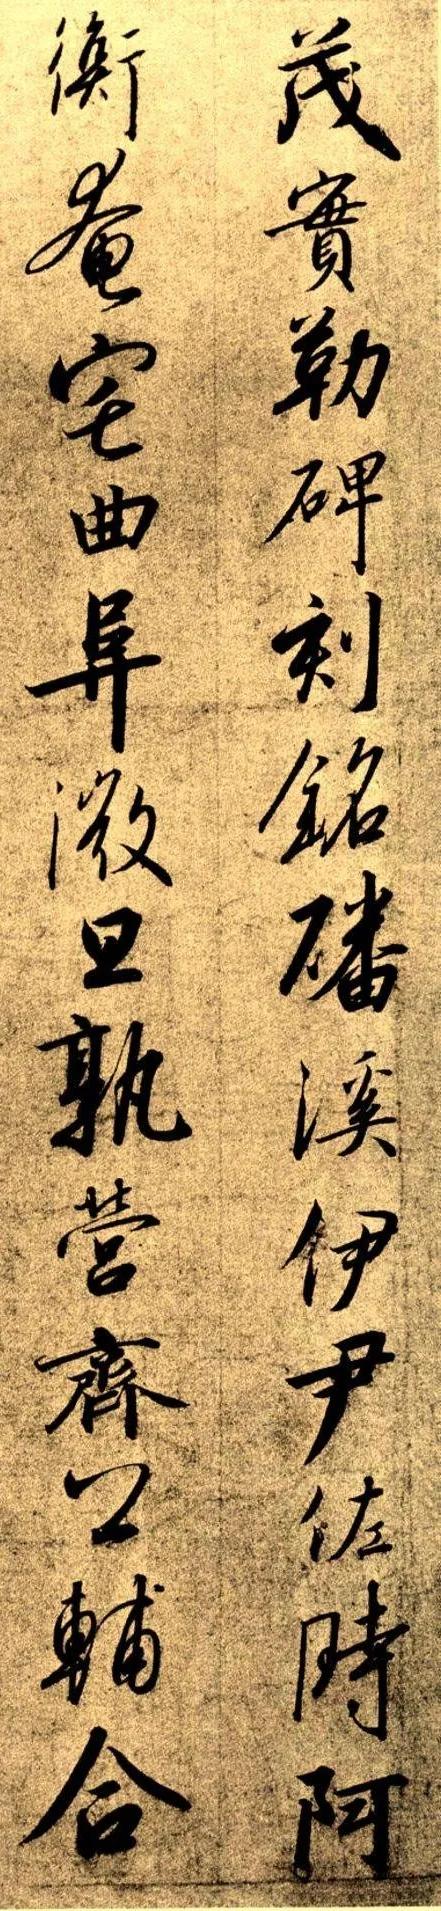 茂實勒碑刻銘磻溪伊尹佐時阿
衡奄宅曲阜微旦孰營齊公輔合